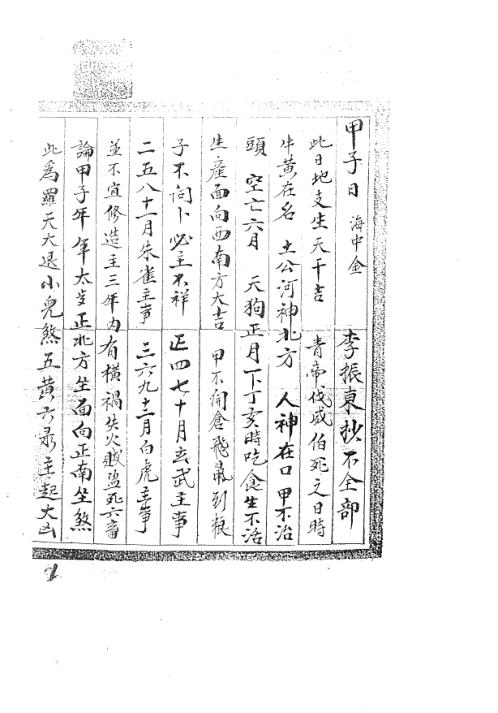 甲子日 海中金 李振東抄不全部
此日地支生天干吉 青帝伐威伯死之日時
牛黄在名 土公河神北方 人神在口 甲不治
頭 空亡六月 天狗正月下丁亥時吃食生不活
生産面向西南方大吉 甲不開倉飛鼠到粮
子不问卜必主不祥 正四七十月玄武主事
二五八十一月朱雀主事 三六九十二月白虎主事
並不宜修造主三年内有橫禍失火賊盗死六畜
論甲子年年太岁正北方坐面向正南坐煞
此為羅天大退小兒煞五黄六录主起大凶